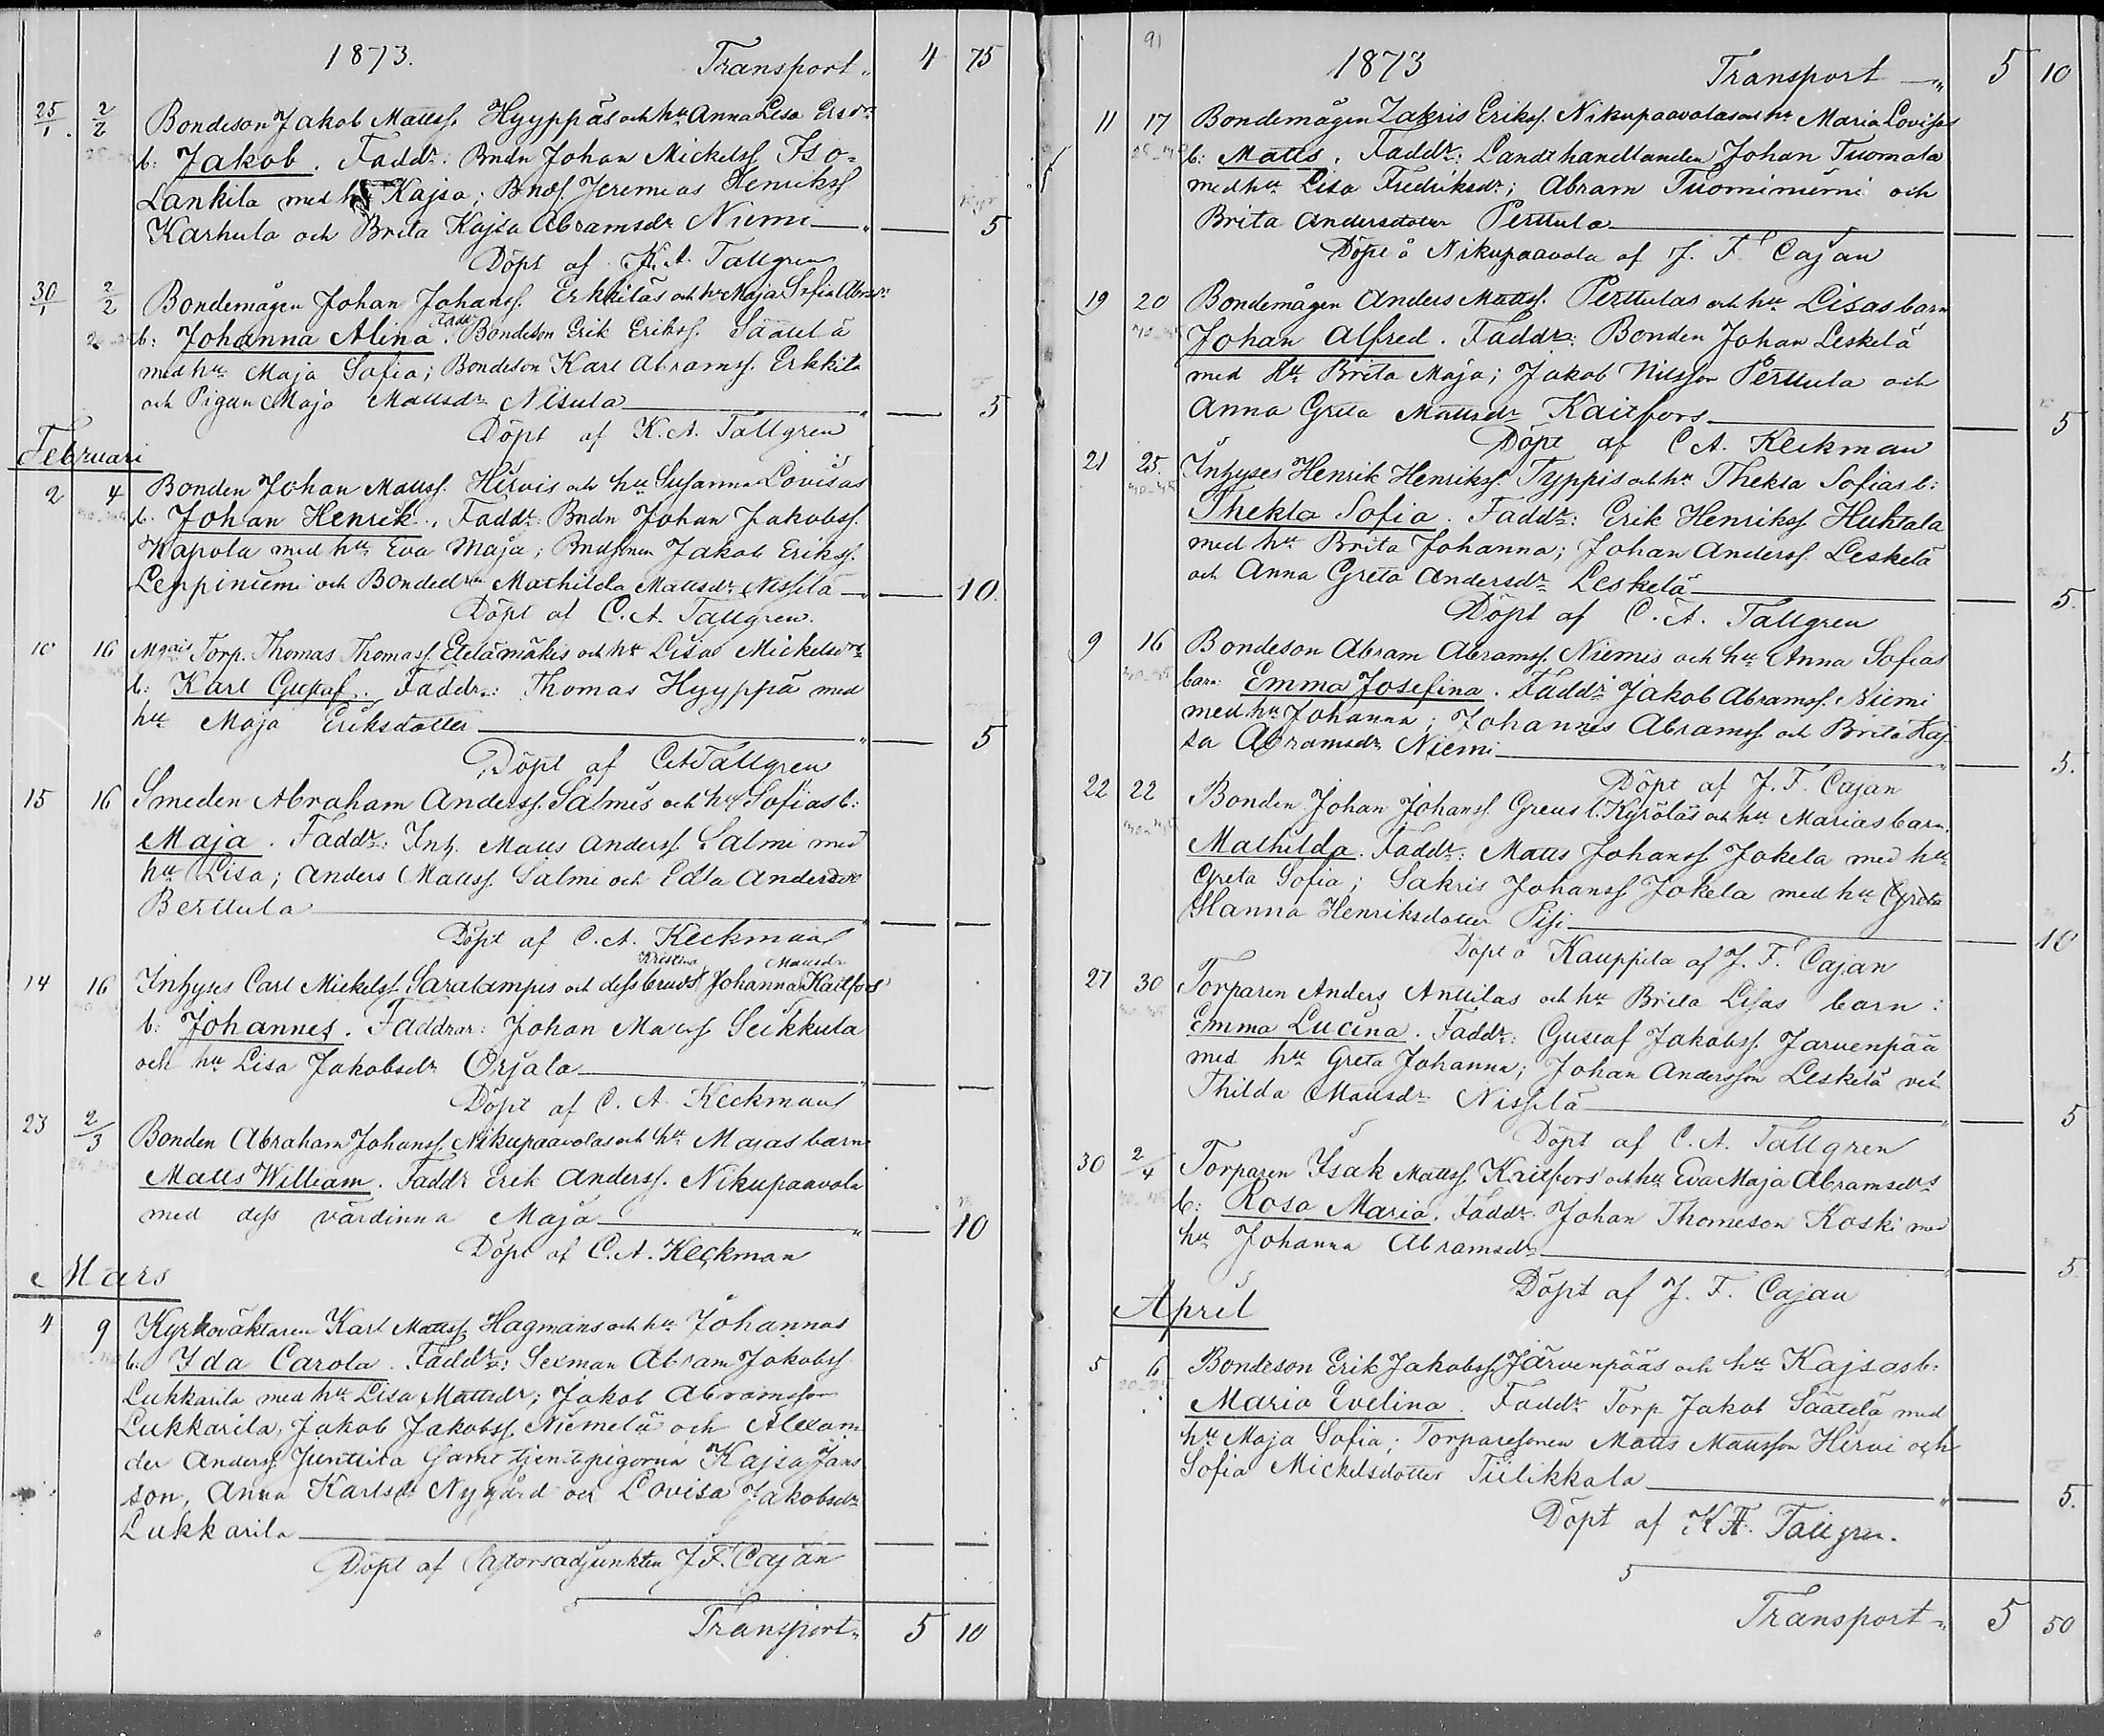 1873. Transport „ 4 75
25/1. 2/2 Bondeson Jakob Mattss. Hyyppäs och hu Anna Lisa Ersdrs
b: Jakob. Faddr: Bndn Johan Mickelss Iso-
Lankila med hu Kajsa; Bnds. Jeremias Henrikss
Karhula och Brita Kajsa Abramsdr Niemi „ — 5
Döpt af K. A. Tallgren
30/1 2/2 Bondemågen Johan Johanss. Erkkiläs och hu Maja Sofia Abrsdrs
b: Johanna Alina. Faddr Bondeson Erik Erikss. Säätelä
med hu Maja Sofia; Bondeson Karl Abramss. Erkkilä
och Pigan Maja Mattsdr Nisula „ — 5
Döpt af K. A. Tallgren
Februari
2 4 Bonden Johan Mattss. Hirvis och hu Susanna Lovisas
b. Johan Henrik. Faddr: Bndn Johan Jakobss.
Kapola med hu Eva Maja; Jakob Erikss.
Leppiniemi och Bondedrn Mathilda Mattsdr Nissilä — 10.
Döpt af C. A. Tallgren.
10 16 Torp. Thomas Thomass. Etelämäkis och hu Lisas Mickelsdrs
b: Karl Gustaf. Faddr: Thomas Hyyppä med
hu Maja Eriksdotter „ — 5
Döpt af C A Tallgren
15 16 Smeden Abraham Anderss. Salmis och hu Sofias b:
Maja. Faddr: Inh. Matts Anderss. Salmi med
hu Lisa; Anders Mattss. Salmi och Edla Andersdr
Berttula „ — —
Döpt af C. A. Keckman
Kristina Mattsdr
14 16 Inhyses Carl Mickelss. Saralampis och dess bruds Johanna Kaitfors
b: Johannes. Faddrar: Johan Matss Seikkula
och hu Lisa Jakobsdr Orjala „ — —
Döpt af C. A. Keckman
23 2/3 Bonden Abraham Johanss. Nikupaavolas och hu Majas barn
Matts William. Faddr Erik Anderss. Nikupaavola
med dess värdinna Maja „ — 10
Döpt af C. A. Keckman
Mars
4 9 Kyrkoväktaren Karl Mattss. Hagmans och hu Johannas
b: Ida Carola. Faddr: Sexman Abram Jakobss
Lukkarila med hu Lisa Mattsdr; Jakob Abramsson
Lukkarila, Jakob Jakobss. Niemelä och Alexan
der Anderss. Junttila samt tjenstepigorna Kajsa Jans
son, Anna Karlsdr Nygård och Lovisa Jakobsdr
Lukkarila — —
Döpt af Pastorsadjunkten J. F. Cajan
Transport „ 5 10
91
1873 Transport „ 5 10
11 17 Bondemågen Zakris Erikss. Nikupaavolas och hu Maria Lovisas
b: Matts. Faddr: Landthandlanden Johan Tuomala
med hu Lisa Fredriksdr; Abram Tuominiemi och
Brita Andersdotter Perttula — —
Döpt å Nikupaavola af J. F. Cajan
19 20 Bondemågen Anders Mattss. Perttulas och hu Lisas barn
Johan Alfred. Faddr: Bonden Johan Leskelä
med Hu Brita Maja; Jakob Nilsson Perttula och
Anna Greta Mattsdr Kaitfors — 5
Döpt af C A. Keckman
21 25. Inhyses Henrik Henrikss. Typpis och hu Thekla Sofias b:
Thekla Sofia. Faddr: Erik Henrikss. Huhtala
med hu Brita Johanna; Johan Anderss. Leskelä
och Anna Greta Andersdr Leskelä — 5.
Döpt af C. A. Tallgren
9 16 Bondeson Abram Abramss. Niemis och hu Anna Sofias
barn: Emma Josefina. Faddr Jakob Abramss. Niemi
med hu Johanna; Johannes Abramss och Brita Kaj-
sa Abramsdr Niemi „ — 5.
Döpt af J. F. Cajan
22 22 Bonden Johan Johanss. Greus l. Kyröläs och hu Marias barn.
Mathilda. Faddr: Matts Johanss Jokela med hu
Greta Sofia; Sakris Johanss Jokela med hu Greta
Hanna Henriksdotter Pisi — 10
Döpt å Kauppila af J. F. Cajan
27 30 Torparen Anders Anttilas och hu Brita Lisas barn:
Emma Lucina. Faddr: Gustaf Jakobss. Jarvenpää
med hu Greta Johanna; Johan Andersson Leskelä och
Thilda Mattsdr Nissilä „ — 5
Döpt af C. A. Tallgren
30 2/4 Torparen Isak Mattss. Kaitfors' och hu Eva Maja Abramsdrs
b: Rosa Maria. Faddr. Johan Thomeson Koski med
hu Johanna Abramsdr „ — 5
Döpt af J. F. Cajan
April
5 6 Bondeson Erik Jakobss Järvenpääs och hu Kajsas b:
Maria Evelina. Faddr Torp Jakob Säätelä med
hu Maja Sofia; Torparesonen Matts Mattsson Hirvi och
Sofia Mickelsdotter Tiilikkala „ — 5.
Döpt af K A. Tallgren.
Transport „ 5 50